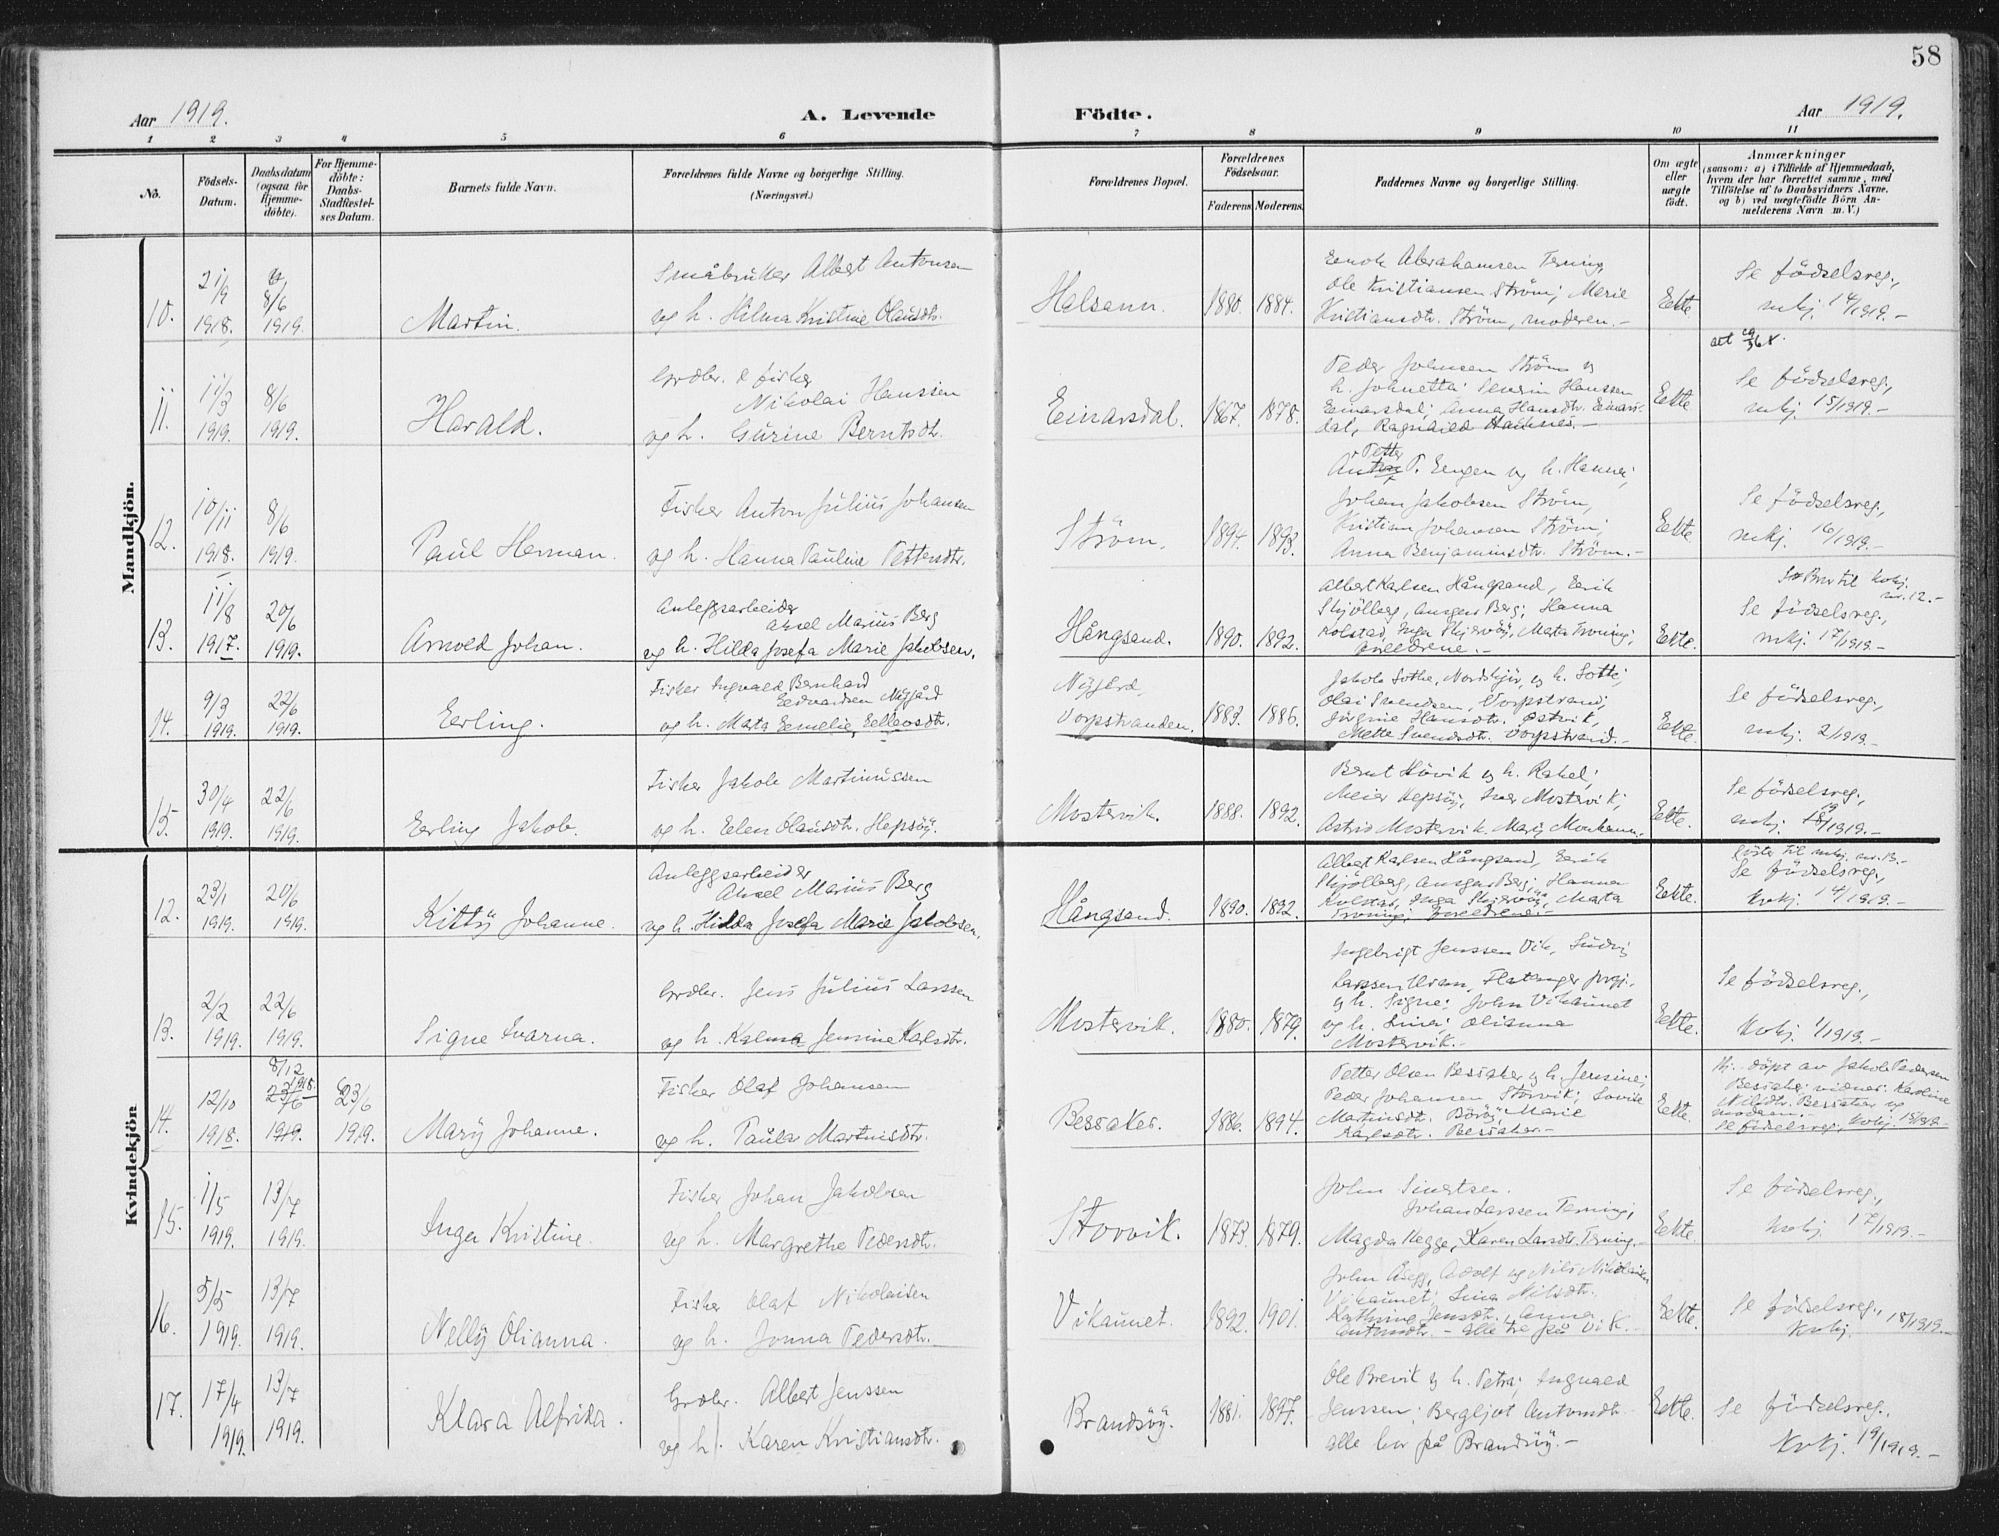 58
Aar 1919. A. Levende Födte. Aar 1919.
1 2 3 4 5 6 7 8 9 10 11
No.
Födsels-Datum.
Daabsdatum (ogsaa for Hjemme-döbte).
For Hjemme-döbte: Daabs-Stadfæstel-ses Datum.
Barnets fulde Navn.
Forældrenes fulde Navne og borgerlige Stilling. (Næringsvei.)
Forældrenes Bopæl.
Forældrenes Födselsaar.
Faderens. Moderens.
Faddernes Navne og borgerlige Stilling.
Om ægte eller uægte födt.
Anmærkninger
(saasom: a) i Tilfælde af Hjemmedaab,
hvem der har forrettet samme, med
Tilföielse af to Daabsvidners Navne,
og b) ved uægtefödte Börn An-
melderens Navn m. V.)
Mandkjön.
10. 21/9 1918. 8/6 1919. Martin.
Småbruker Albert Antonsen
og h. Hilma Kristine Olausdtr.
Halsann. 1880. 1884.
Enok Abrahamsen Terning,
Ole Kristiansen Ström; Marie
Kristiansdtr. Ström, moderen.-
Ekte
Se födselsreg.,
mkj. 14/1919.-
11. 11/3 1919. 8/6 1919. Harald.
Grdbr. & fisker
Nikolai Hanssen
og h. Gurine Berntsdtr.
Einarsdal. 1867. 1878.
Peder Johnsen Ström og
h. Johnetta; Hanssen
Einarsdal; Anna Hansdtr. Einars-
dal,
Ekte
Se födselsreg.,
mkj. 15/1919.-
12. 10/11 1918. 8/6 1919. Paul Herman.
Fisker Anton Julius Johansen
og h. Hanna Pauline Pettersdtr.
Ström. 1894. 1893.
Petter
P. Engen og h. Hanna;
Johan Jakobsen Ström,
Kristian Johansen Ström;
Anna Benjaminsdtr. Ström.-
Ekte
Se födselsreg.,
mkj. 16/1919.-
13. 11/8 1917. 20/6 1919. Arnold Johan.
Anleggsarbeider
Aksel Marius Berg
og h. Hilda Josefa Marie Jakobsen.
Hångsand. 1890. 1892.
Albert Karlsen Hångsand, Eerik
Skjölberg, Ansgar Berg; Hanna
Kolstad, Inga Skjervöy, Marta Terning;
foreldrene.-
Ekte.
Bror til kvkj. nr. 12.-
Se födselsreg.,
mkj. 17/1919.-
14. 9/3 1919. 22/6 1919. Eerling.
Fisker Ingvald Bernhard
Eedvardsen Nygård
og h. Marta Eemelie Eellevsdtr.
Nygård, Vorpstranden. 1883. 1886.
Olai Svendsen, Vorpstrand;
Jörgine Hansdtr. Östvik,
Mette Svendsdtr. Vorpstrand.-
Ekte.
Se födselsreg.,
mkj. 2/1919.-
15. 30/4 1919. 22/6 1919. Eerling Jakob.
Fisker Jakob Martinussen
og h. Eelen Olausdtr. Hepsöy.
Mostervik. 1888. 1892.
Bernt Hövik og h. Rakel;
Meier Hepsöy, Iver Mostervik;
Astrid Mostervik, Mary
Ekte.
Se födselsreg.,
mkj. 18/1919.-
Kvindekjön
12. 23/1 1919. 20/6 1919. Kitty Johanne.
Anleggsarbeider
Aksel Marius Berg
og h. Hilda Josefa Marie Jakobsen.
Hångsand. 1890. 1892.
Albert Karlsen Hångsand, Eerik
Skjölberg, Ansgar Berg; Hanna
Kolstad, Inga Skjervöy, Marta
Terning; foreldrene.-
Ekte.
Söster til mkj. nr. 13.-
Se födselsreg.,
kvkj. 14/1919.-
13. 2/2 1919. 22/6 1919. Signe Ivarna.
Grdbr. Jens Julius Larssen
og h. Kalma Jensine Karlsdtr.
Mostervik. 1880. 1879.
Ingebrigt Jenssen Vik, Ludvig
Larssen Utvan, Flatanger
og h. Signe; John Vikaunet
og h. Lina; Olianna
Mostervik.-
Ekte.
Se födselsreg.,
kvkj. 1/1919.-
14. 12/10 1918. 8/12 1918. 23/6 1919. 23/6 1919. Mary Johanne.
Fisker Olaf Johansen
og h. Paula Martinsdtr.
Bessaker. 1886. 1894.
Petter Olsen Bessaker og h. Jensine;
Peder Johansen Storvik; Lovise
Martinsdtr. Böröy, Marie
Karlsdtr. Bessaker.-
Ekte.
Hj. döpt av Jakob Pedersen
Bessaker; vidner: Karoline
Nilsdtr. Bessaker og
moderen.-
Se födselsreg., kvkj. 15/1919.-
15. 1/5 1919. 13/7 1919. Inga Kristine.
Fisker Johan Jakobsen
og h. Margrethe Pedersdtr.
Storvik. 1873. 1879.
John Sivertsen.
Johan Larssen Terning;
Magda Hegge, Karen Larsdtr. Terning.-
Ekte.
Se födselsreg.,
kvkj. 17/1919.-
16. 5/5 1919. 13/7 1919. Nelly Olianna.
Fisker Olaf Nikolaisen
og h. Jonna Pedersdtr.
Vikaunet. 1892. 1901.
John Aregg, Adolf og Nils Nikolaisen
Vikaunet; Lina Nilsdtr.
Kathrine Jensdtr., Anna
Antonsdtr. - alle tre på Vik.-
Ekte.
Se födselsreg.,
kvkj. 18/1919.-
17. 17/4 1919. 13/7 1919. Klara Alfrida.
Grdbr. Albert Jenssen
og h. Karen Kristiansdtr.
Brandsöy. 1881. 1897.
Ole Brevik og h. Petra; Ingvald
Jenssen; Bergljot Antonsdtr.
alle bor på Brandsöy.-
Ekte.
Se födselsreg.,
kvkj. 19/1919.-